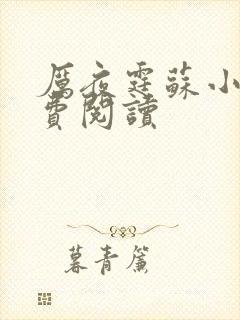 厲夜霆蘇小
費閱讀
暮青簾